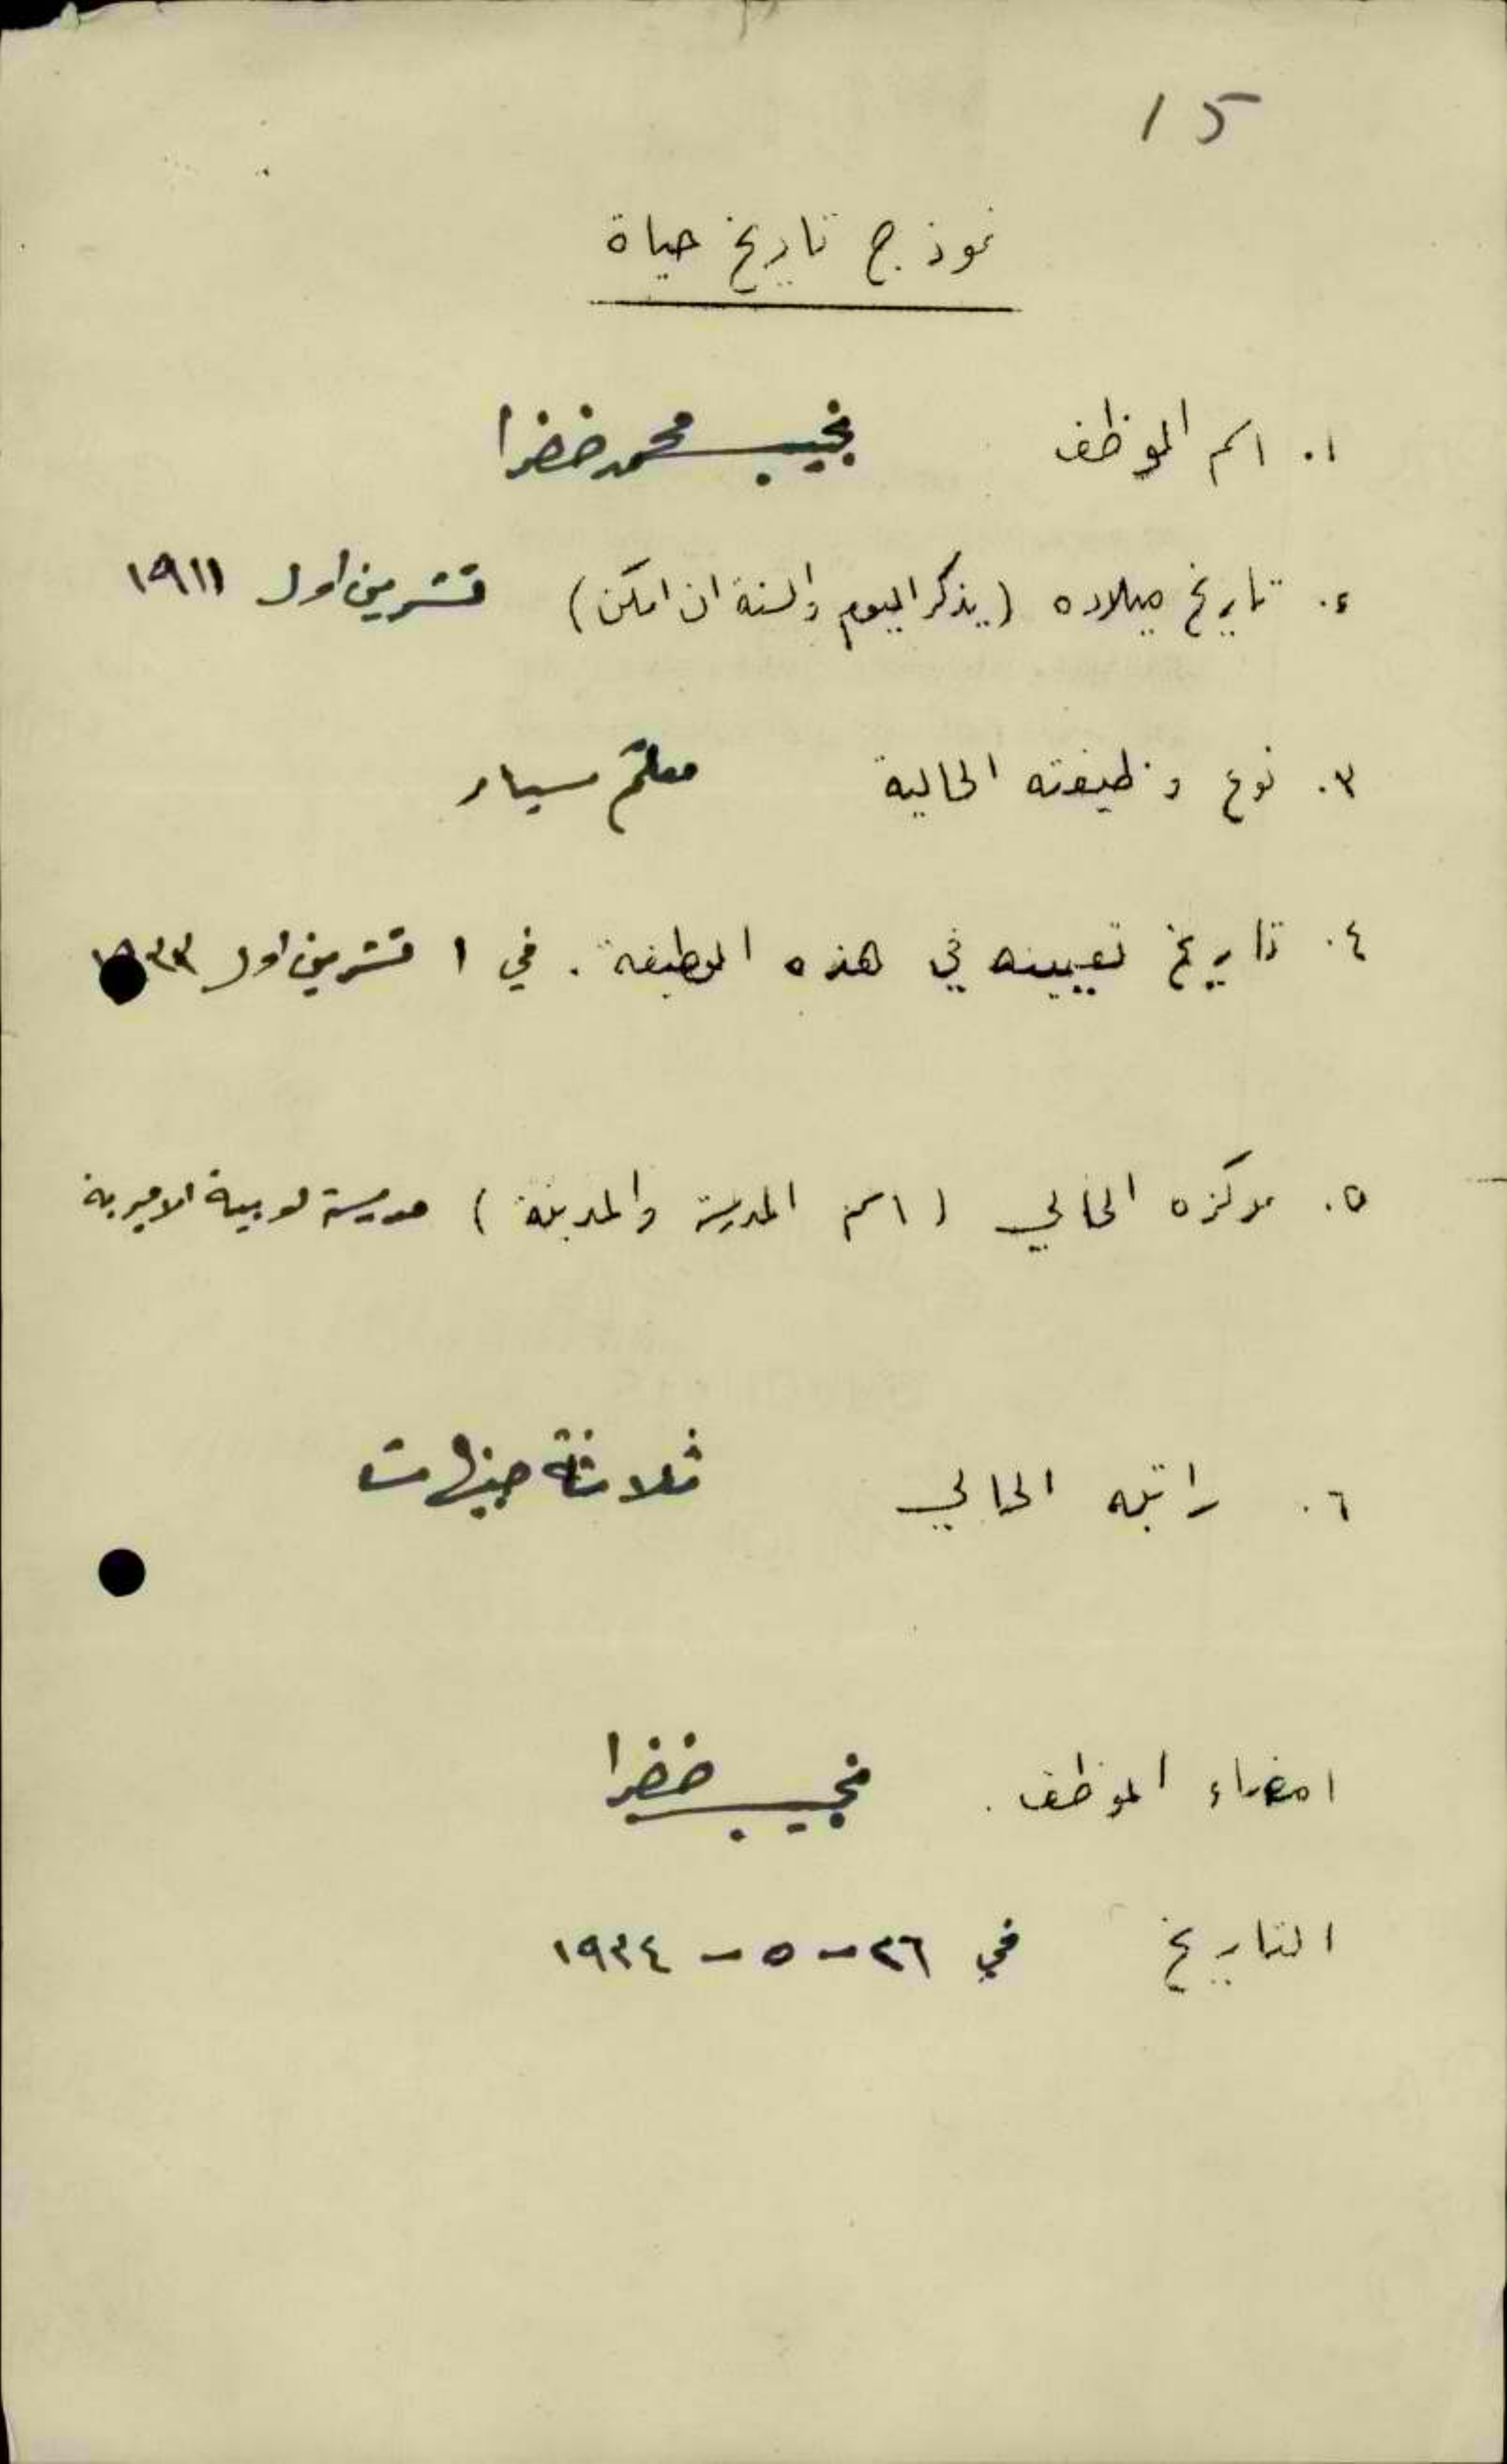 15
نموذج تاريخ حياة
١. اسم الموظف نجيب محمد خضرا
٢. تاريخ ميلاده (يذكر اليوم والسنة ان امكن) تشرين اول ١٩١١
٣. نوع وظيفته الحالية معلم سيار
٤. تاريخ تعيينه في هذه الوظيفة. في ١ تشرين اول ١٩٣٣
٥. مركزه الحالي (اسم المدرسة والمدينة) مدرسة لوبية الاميرية
٦. راتبه الحالي ثلاثة جنيهات
امضاء الموظف. نجيب خضرا
التاريخ في ٢٦ - ٥ - ١٩٣٤